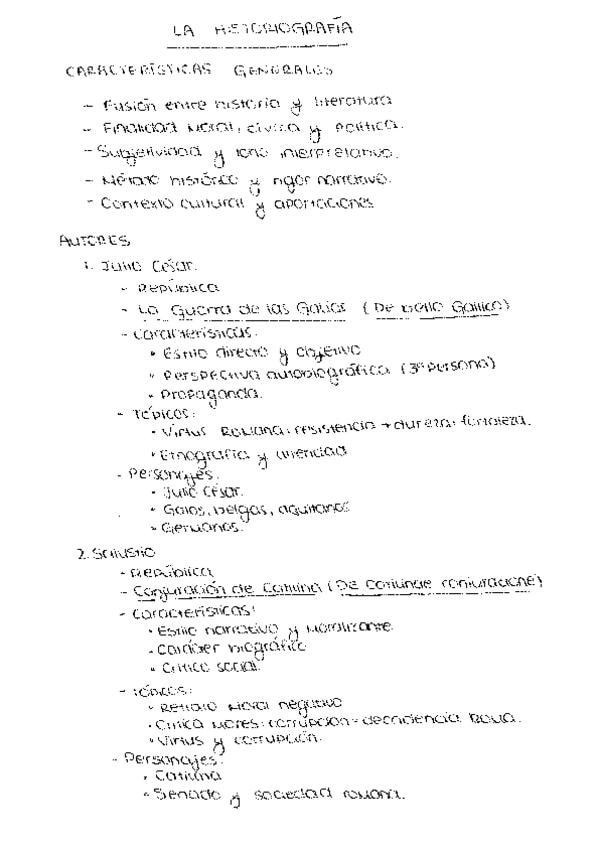 LA HISTORIOGRAFÍA
CARACTERÍSTICAS GENERALES
- Fusión entre historia y literatura
- Finalidad moral, cívica y política.
- Subjetividad y tono interpretativo.
- Método histórico y rigor narrativo.
- Contexto cultural y aportaciones
AUTORES
1. Julio César.
- República
- La Guerra de las Galias (De bello Gallico)
- Características:
• Estilo directo y objetivo
• Perspectiva autobiográfica (3ª persona)
• Propaganda.
- Tópicos:
• Virtus Romana: resistencia + dureza: fortaleza.
• Etnografía y
- Personajes:
• Julio César.
• Galos, belgas, aquitanos
• Germanos.
2. Salustio
- República
- Conjuración de Catilina (De Catilinae coniuratione)
- Características:
• Estilo narrativo y moralizante.
• Carácter biográfico
• Crítica social.
- Tópicos:
• Retrato moral negativo
• Crítica mores: corrupción = decadencia Roma.
• Virtus y corrupción.
- Personajes:
• Catilina
• Senado y sociedad romana.